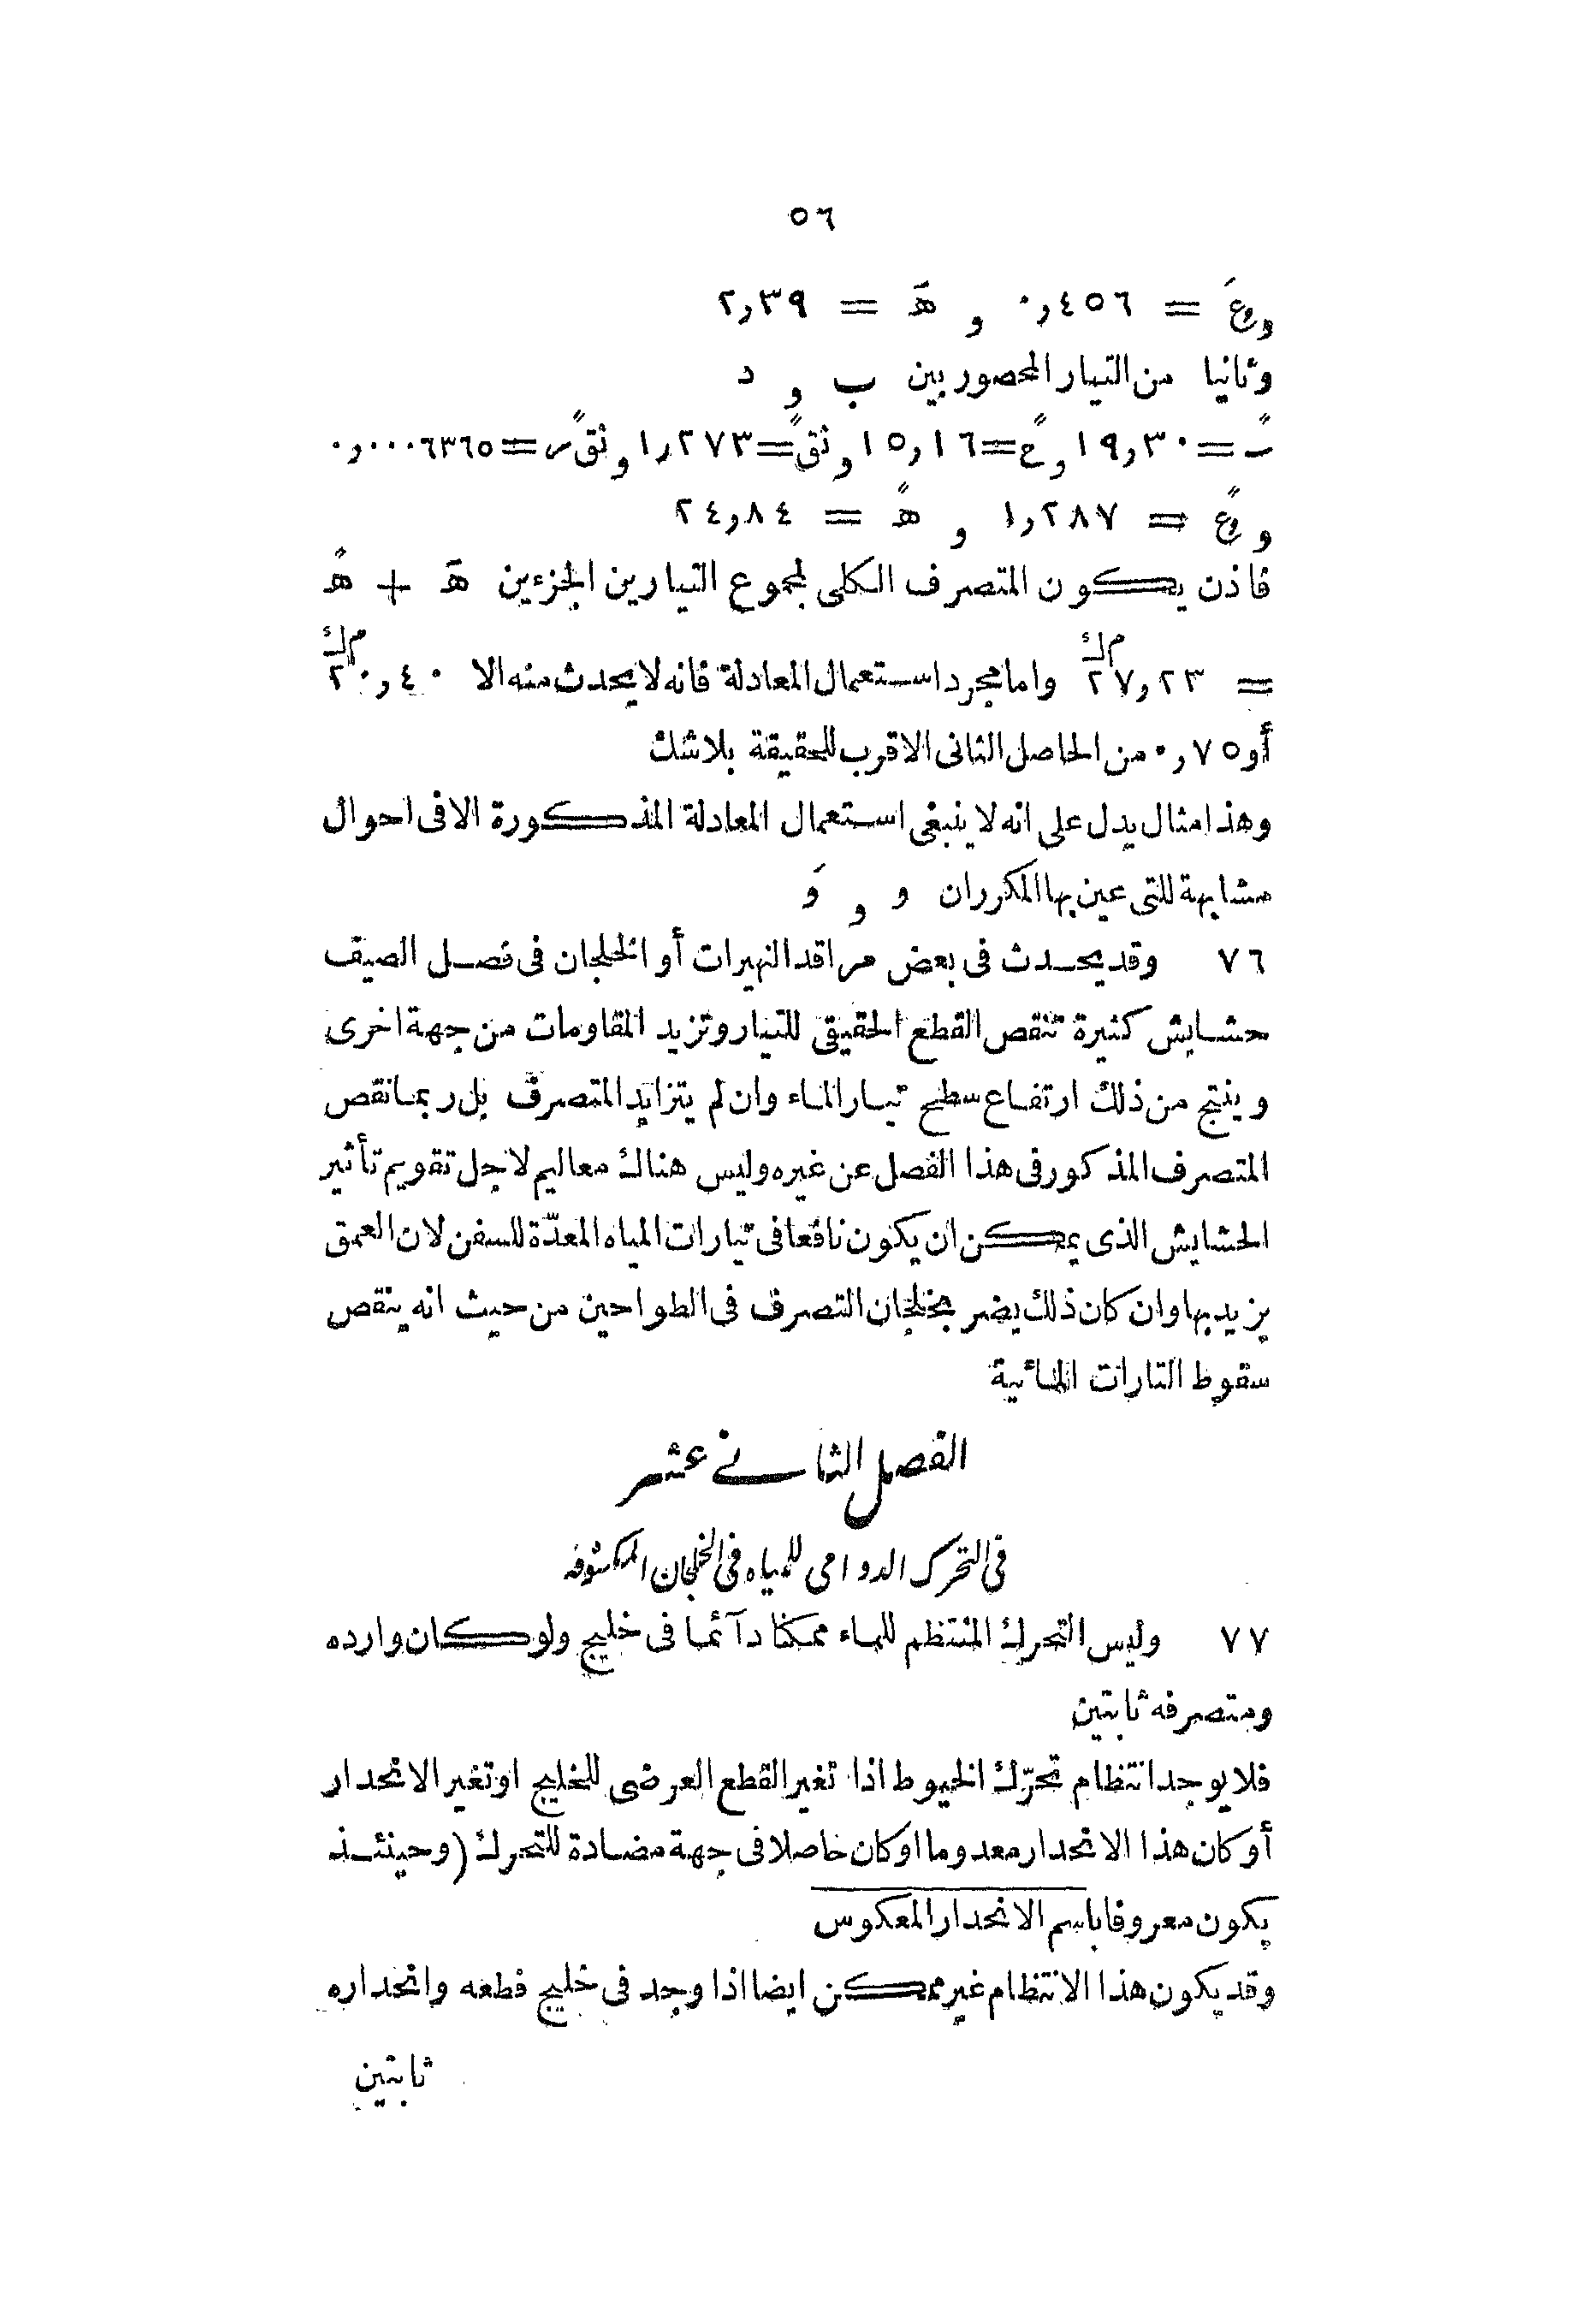 ٥٦
و عَ = ٠٫٤٥٦ و هَ = ٢٫٣٩
وثانيا من التيار المحصور بين ب و د
سً = ١٩٫٣٠ و عً = ١٥٫١٦ و نقً = ١٫٢٧٣ و نقً س = ٠٫٠٠٠٦٣٦٥
و عً = ١٫٢٨٧ و هً = ٢٤٫٨٤
فاذن يكون المتصرف الكلى لمجموع التيارين الجزءين هَ + هً
= ٢٧٫٢٣ م ك واما مجرد استعمال المعادلة فانه لا يحدث منه الا ٢٠٫٤٠ م ك
أو ٠٫٧٥ من الحاصل الثانى الاقرب للحقيقة بلا شك
وهذا مثال يدل على انه لا ينبغى استعمال المعادلة المذكورة الا فى احوال
مشابهة للتى عين بها المكرران و و وَ
٧٦ وقد يحدث فى بعض مراقد النهيرات أو الخلجان فى فصل الصيف
حشايش كثيرة تنقص القطع الحقيقى للتيار وتزيد المقاومات من جهة اخرى
وينتج من ذلك ارتفاع سطح تيار الماء وان لم يتزايد المتصرف بل ربما نقص
المتصرف المذكور فى هذا الفصل عن غيره وليس هناك معاليم لاجل تقويم تأثير
الحشايش الذى يمكن ان يكون نافعا فى تيارات المياه المعدّة للسفن لان العمق
يزيد بها وان كان ذلك يضر بخلجان التصرف فى الطواحين من حيث انه ينقص
سقوط التارات المائية
الفصل الثانى عشر
فى التحرك الدوامى للمياه فى الخلجان المكشوفه
٧٧ وليس التحرك المنتظم للماء ممكنا دآئما فى خليج ولو كان وارده
ومتصرفه ثابتين
فلا يوجد انتظام تحرّك الخيوط اذا تغير القطع العرضى للخليج او تغير الانحدار
أو كان هذا الانحدار معدوما او كان حاصلا فى جهة مضادة للتحرك (وحينئذ
يكون معروفا باسم الانحدار المعكوس
وقد يكون هذا الانتظام غير ممكن ايضا اذا وجد فى خليج قطعه وانحداره
ثابتين